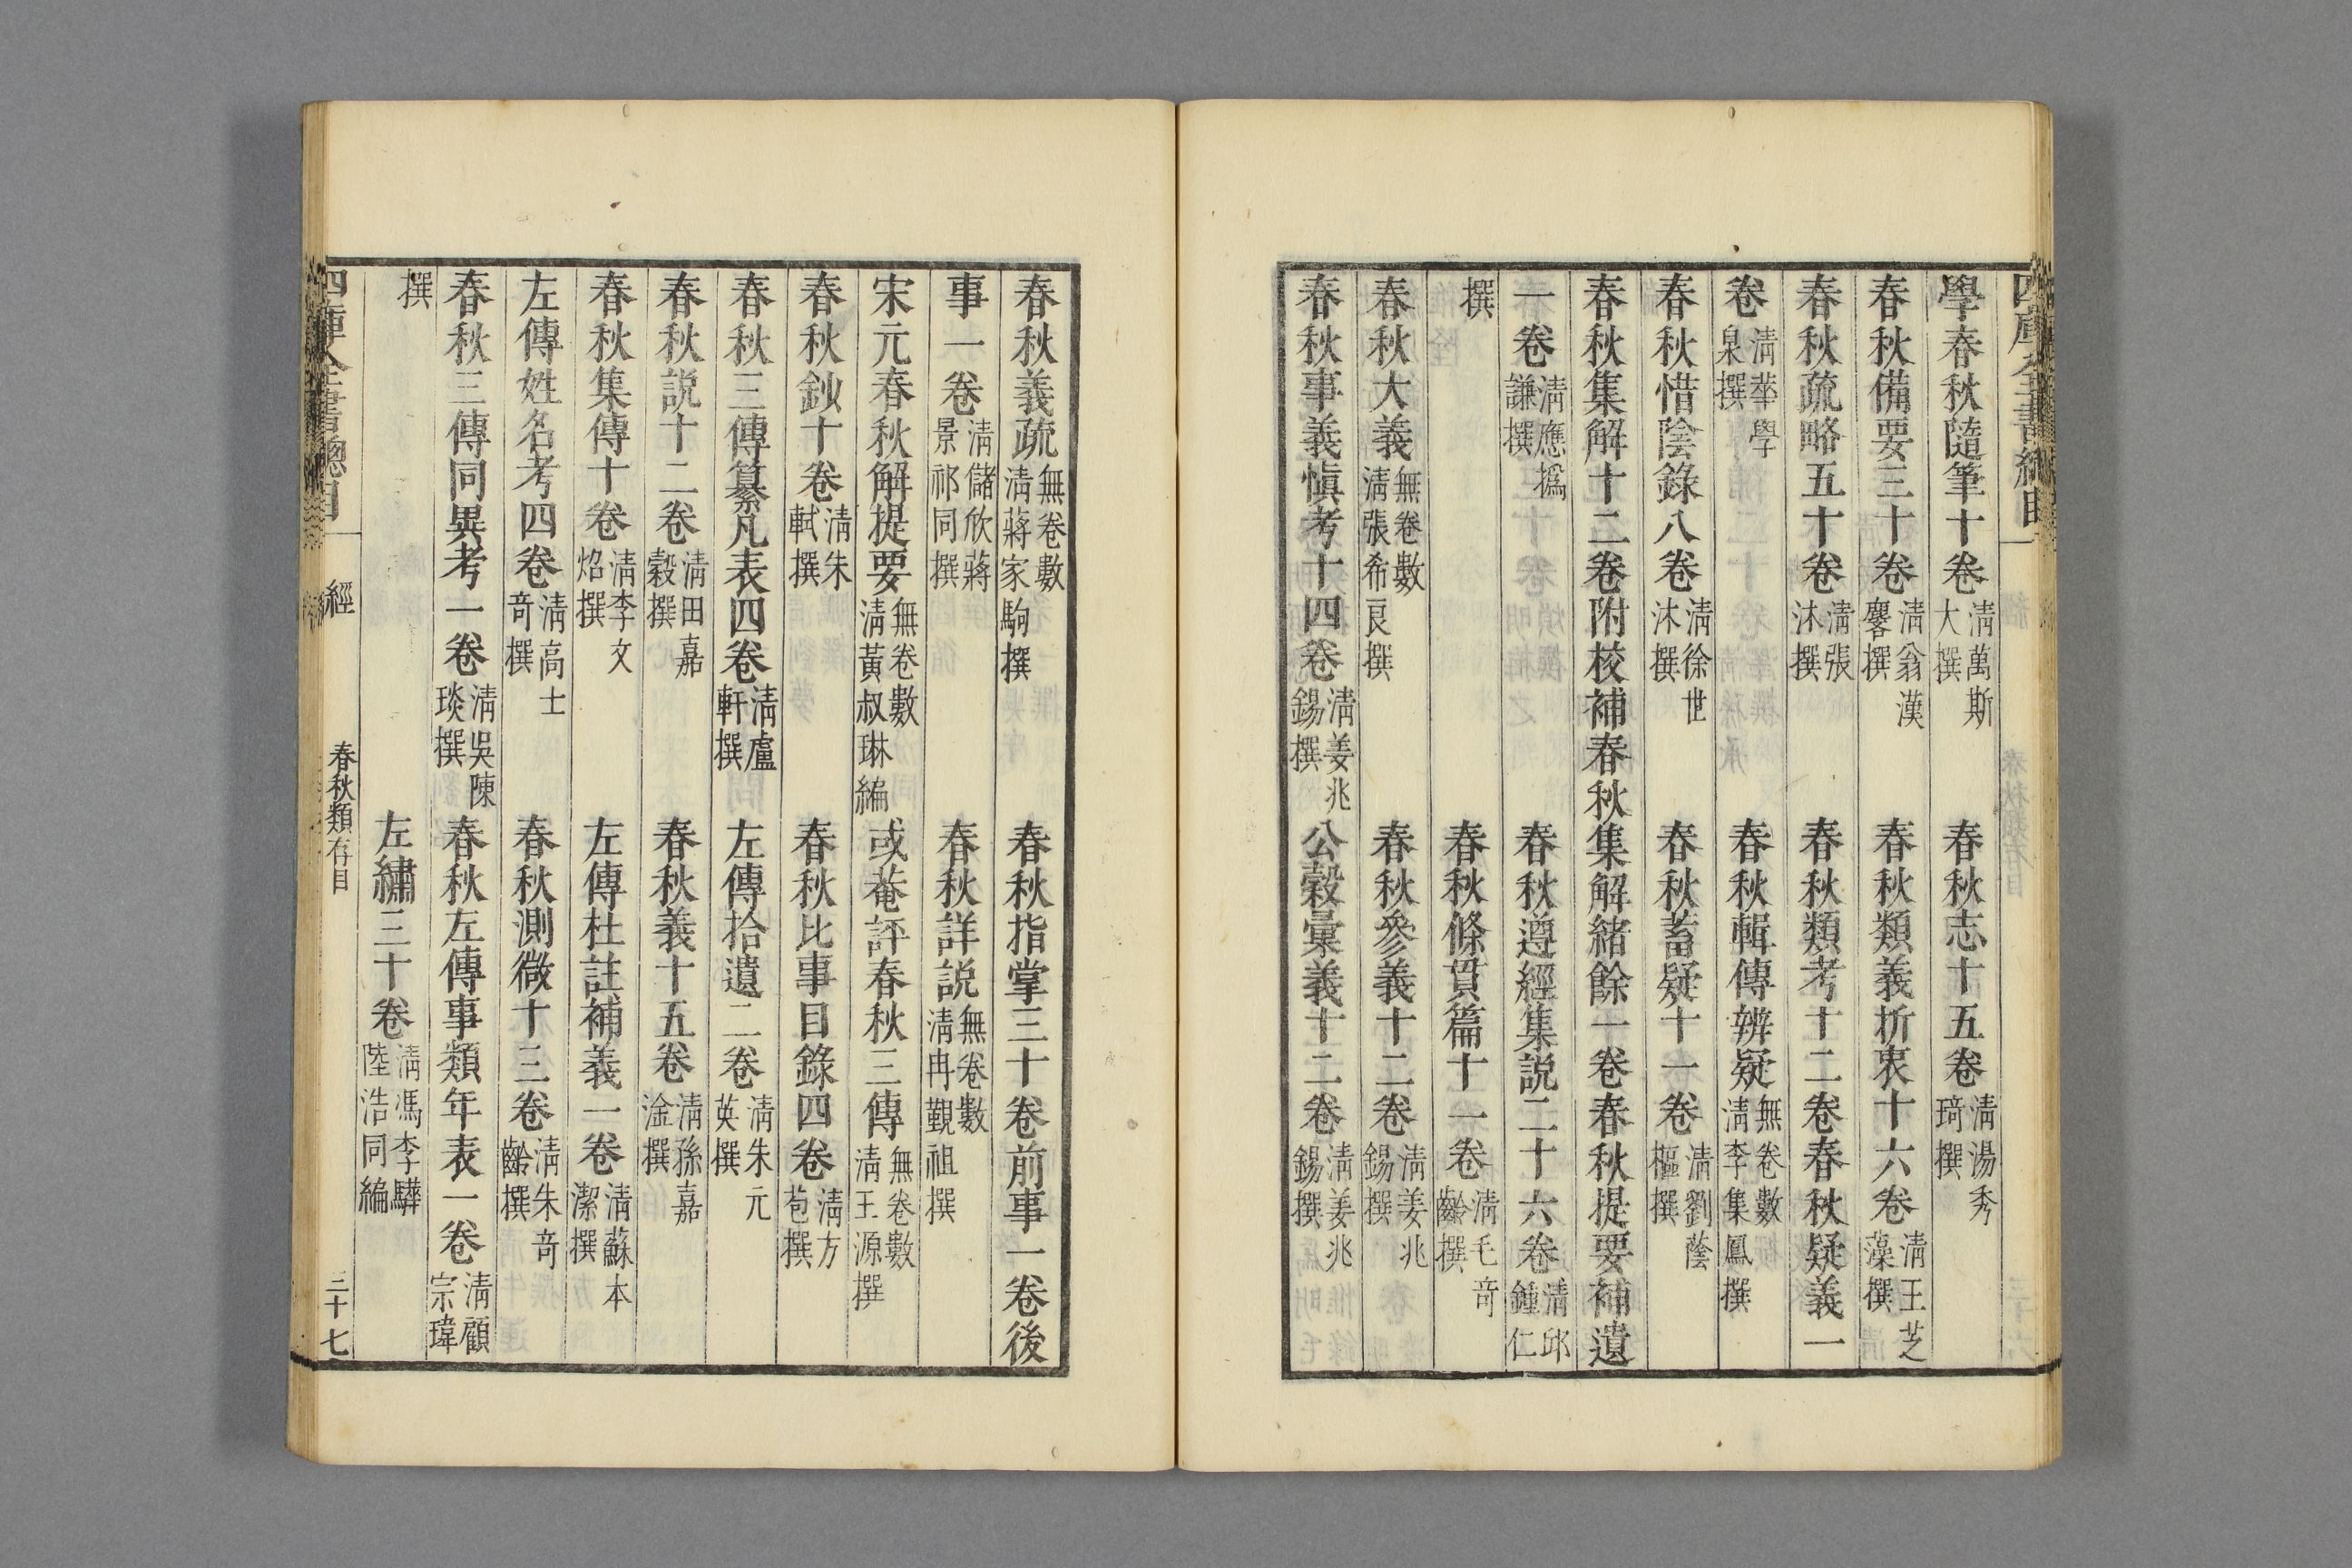 學春秋隨筆十卷 清萬斯大撰 春秋志十五卷 清湯秀琦撰
春秋備要三十卷 清翁漢麐撰 春秋類義折衷十六卷 清王芝藻撰
春秋疏略五十卷 清張沐撰 春秋類考十二卷春秋疑義一
卷 清華學泉撰 春秋輯傳辨疑 無卷數清李集鳳撰
春秋惜陰錄八卷 清徐世沐撰 春秋蓄疑十一卷 清劉蔭樞撰
春秋集解十二卷附校補春秋集解緒餘一卷春秋提要補遺
一卷 清應撝謙撰 春秋遵經集説二十六卷 清邱鍾仁
撰 春秋條貫篇十一卷 清毛奇齡撰
春秋大義 無卷數清張希良撰 春秋參義十二卷 清姜兆錫撰
春秋事義愼考十四卷 清姜兆錫撰 公穀彙義十二卷 清姜兆錫撰
春秋義疏 無卷數清蔣家駒撰 春秋指掌三十卷前事一卷後
事一卷 清儲欣蔣景祁同撰 春秋詳説 無卷數清冉覲祖撰
宋元春秋解提要 無卷數清黃叔琳編 或菴評春秋三傳 無卷數清王源撰
春秋鈔十卷 清朱軾撰 春秋比事目錄四卷 清方苞撰
春秋三傳纂凡表四卷 清盧軒撰 左傳拾遺二卷 清朱元英撰
春秋説十二卷 清田嘉穀撰 春秋義十五卷 清孫嘉淦撰
春秋集傳十卷 清李文炤撰 左傳杜註補義一卷 清蘇本潔撰
左傳姓名考四卷 清高士奇撰 春秋測微十三卷 清朱奇齡撰
春秋三傳同異考一卷 清吳陳琰撰 春秋左傳事類年表一卷 清顧宗瑋
撰 左繡三十卷 清馮李驊陸浩同編
四庫全書總目 經 春秋類存目 三十七